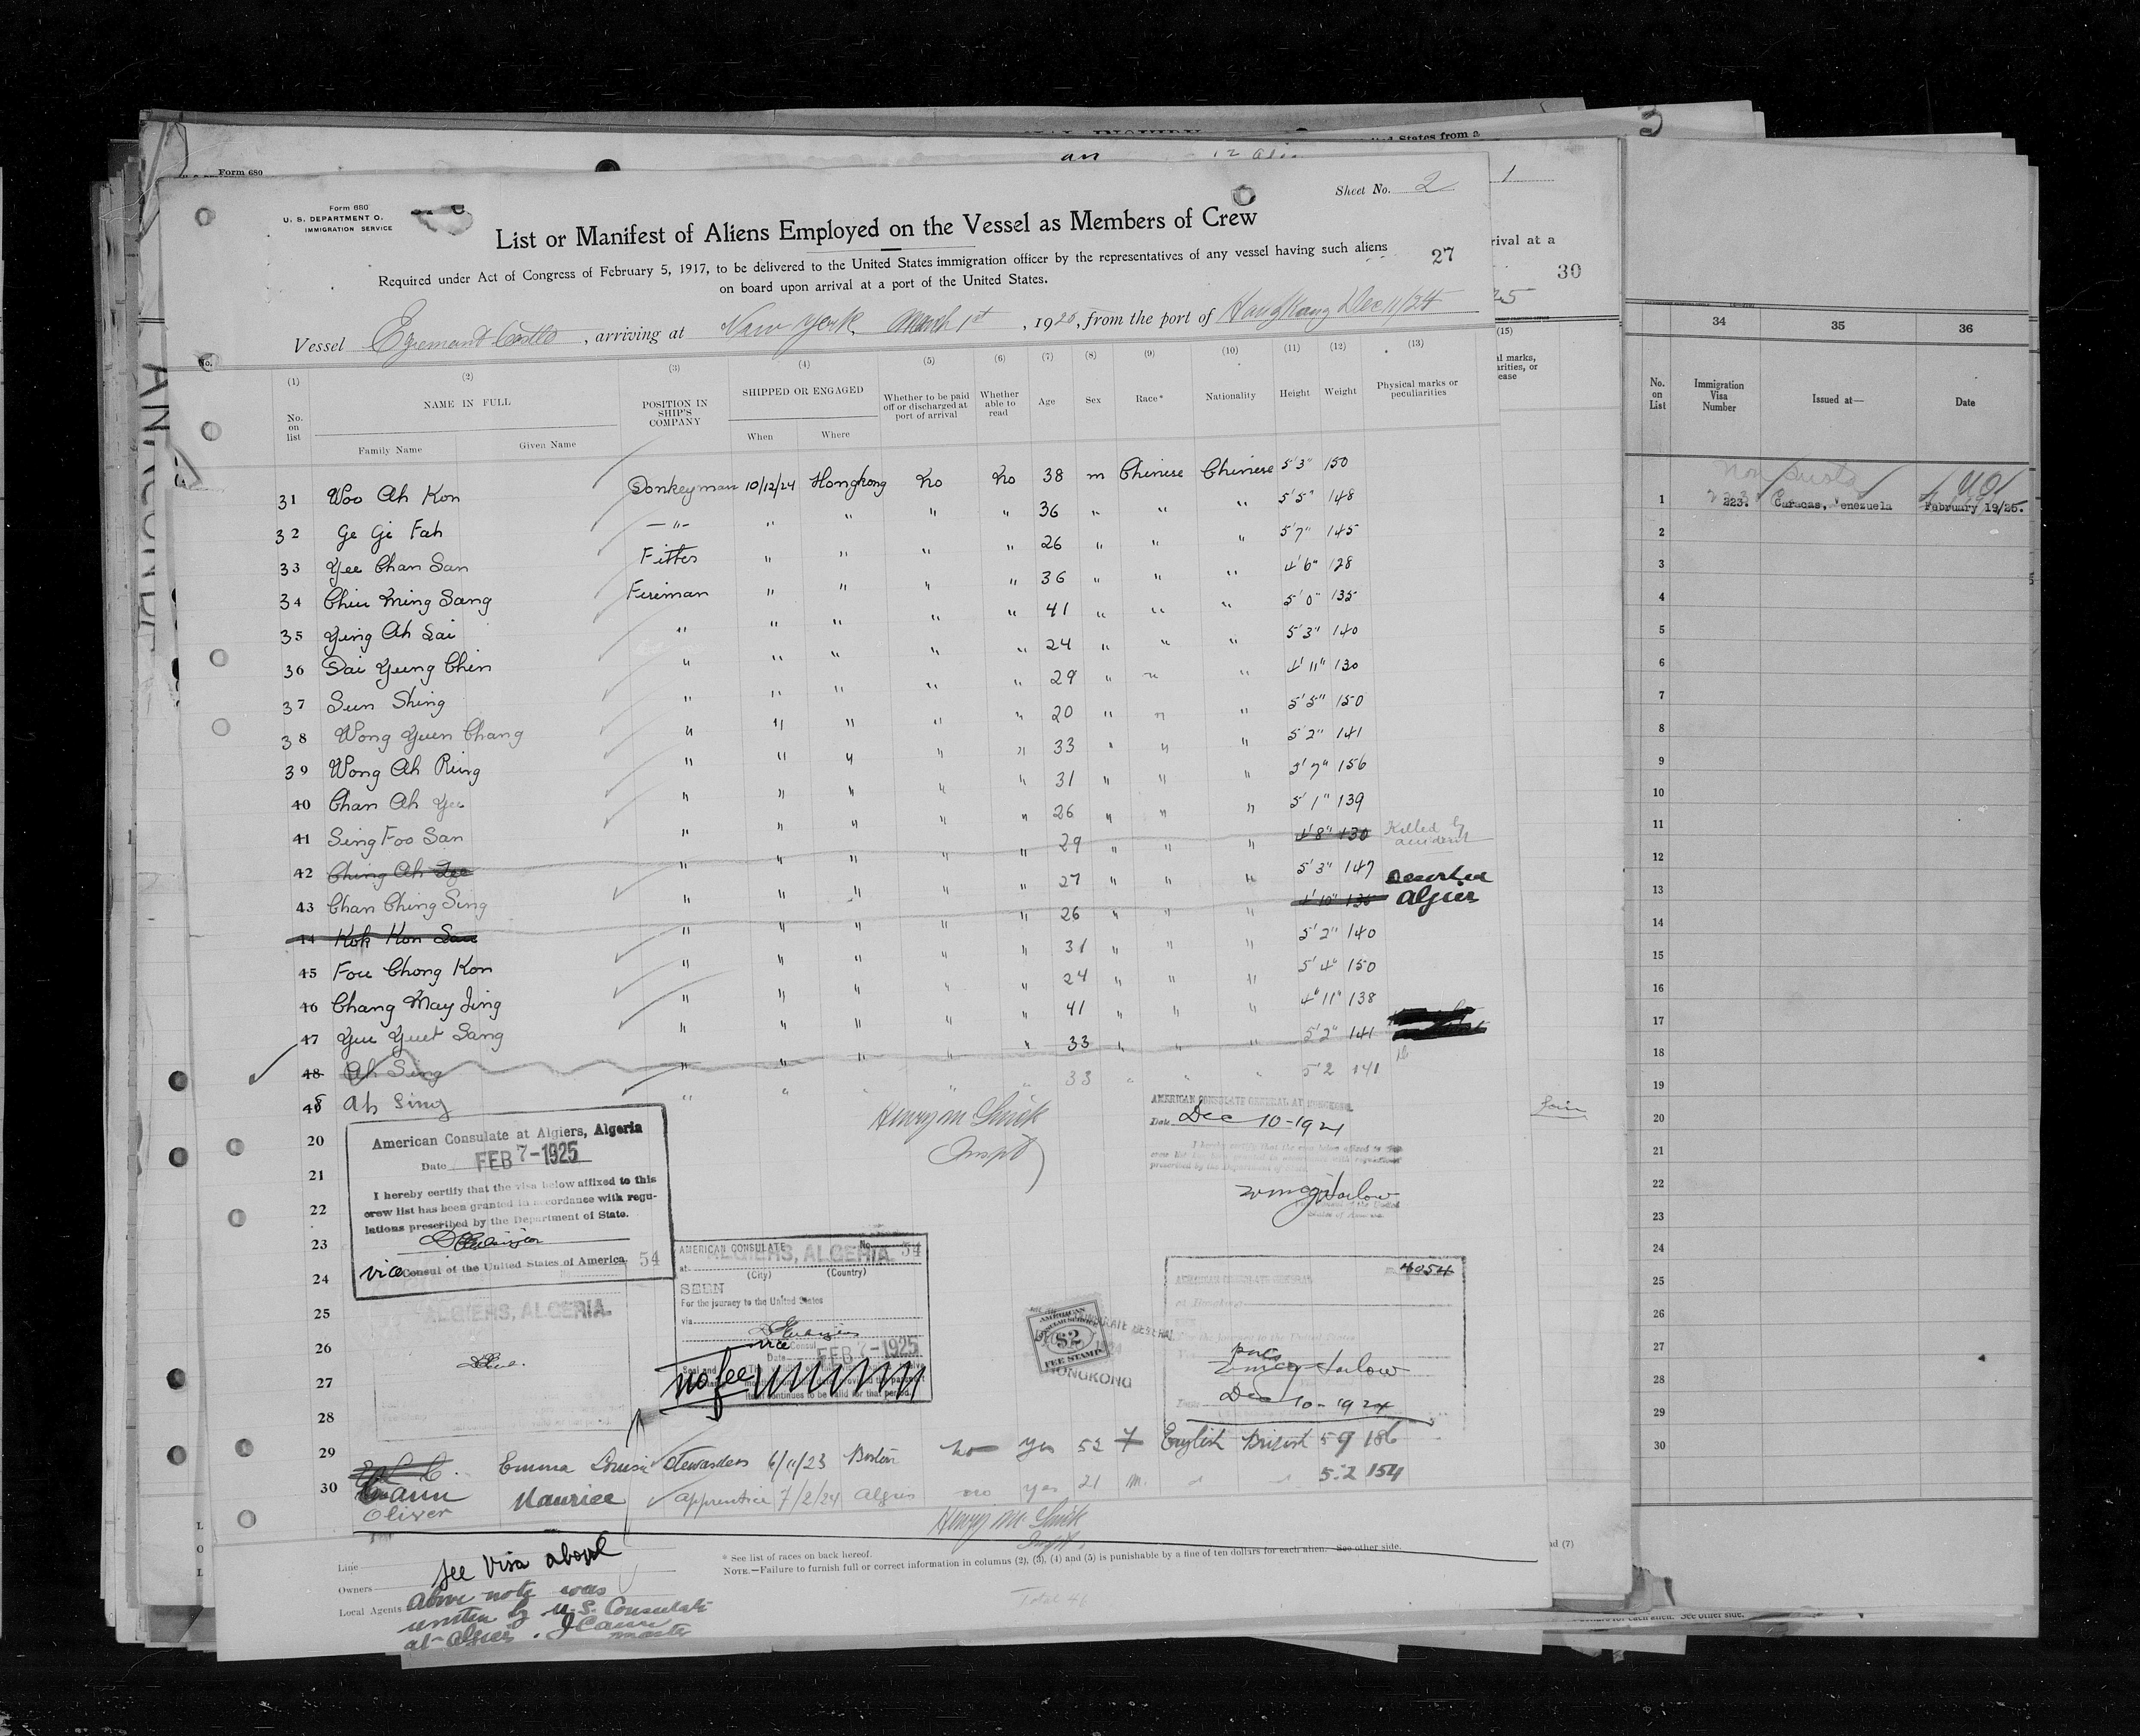 Form 680
Form 680
U. S. DEPARTMENT O.
IMMIGRATION SERVICE
Sheet No. 2
List or Manifest of Aliens Employed on the Vessel as Members of Crew
27
Required under Act of Congress of February 5, 1917, to be delivered to the United States immigration officer by the representatives of any vessel having such aliens
on board upon arrival at a port of the United States.
Vessel Egremont Castle, arriving at New York, March 1st, 1925, from the port of HongKong Dec 11/24
(1) (2) (3) (4) (5) (6) (7) (8) (9) (10) (11) (12) (13)
No. on list NAME IN FULL POSITION IN SHIP'S COMPANY SHIPPED OR ENGAGED Whether to be paid off or discharged at port of arrival Whether able to read Age Sex Race* Nationality Height Weight Physical marks or peculiarities
Family Name Given Name When Where
31 Woo Ah Kon Donkeyman 10/12/24 Hongkong No No 38 m Chinese Chinese 5'3" 150
32 Ge Gi Fah —"— " " " " 36 " " " 5'5" 148
33 Yee Chan San Fitter " " " " 26 " " " 5'7" 145
34 Chiu Ming Sang Fireman " " " " 36 " " " 4'6" 128
35 Ying Ah Sai " " " " " 41 " " " 5'0" 135
36 Sai Yung Chin " " " " " 24 " " " 5'3" 140
37 Sun Shing " " " " " 29 " " " 4'11" 130
38 Wong Yuen Chang " " " " " 20 " " " 5'5" 150
39 Wong Ah Ring " " " " " 33 " " " 5'2" 141
40 Chan Ah Yee " " " " " 31 " " " 5'7" 156
41 Sing Foo San " " " " " 26 " " " 5'1" 139
42 Ching Ah " " " " " 29 " " " 4'8" 130 Killed by accident
43 Chan Ching Sing " " " " " 27 " " " 5'3" 147
44 Kok Kon San " " " " " 26 " " " 4'10" 130 Deserted Algier
45 Fou Chong Kon " " " " " 31 " " " 5'2" 140
46 Chang May Jing " " " " " 24 " " " 5'4" 150
47 Yuu Yuet Sang " " " " " 41 " " " 4'11" 138
48 Ah Sing " " " " " 33 " " " 5'2" 141
48 Ah Sing " " " " " 33 " " " 5'2 141
20
21
22
23
24
25
26
27
28
American Consulate at Algiers, Algeria
Date FEB 7-1925
I hereby certify that the visa below affixed to this
crew list has been granted in accordance with regu-
lations prescribed by the Department of State.
Vice Consul of the United States of America. 54
ALGIERS, ALGERIA.
AMERICAN CONSULATE No. 54
at ALGIERS, ALGERIA.
(City) (Country)
SEEN
For the journey to the United States
via
vice Consul
Date FEB 7-1925
no fee
AMERICAN CONSULATE GENERAL AT HONGKONG
Date Dec 10-1924
AMERICAN
CONSULAR SERVICE
$2
FEE STAMP
HONGKONG
4054
AMERICAN CONSULATE GENERAL
For the journey to the United States
Harlow
Dec 10-1924
29 Emma Louise Stewardess 6/11/23 Boston no yes 52 F English British 5 9 186
Cann
30 Oliver Maurice apprentice 7/2/24 Algiers no yes 21 m. " " 5.2 154
Line
Owners
Local Agents
See Visa above
Above note was
written by U.S. Consulate
at Algiers. J Cann
master
* See list of races on back hereof.
NOTE.—Failure to furnish full or correct information in columns (2), (3), (4) and (5) is punishable by a fine of ten dollars for each alien. See other side.
Total 46
3
ited States from a
1
rival at a
30
25
(15)
34 35 36
No. on List Immigration Visa Number Issued at— Date
1 223. Caracas, Venezuela February 19/25.
2
3
4
5
6
7
8
9
10
11
12
13
14
15
16
17
18
19
20
21
22
23
24
25
26
27
28
29
30
nd (7)
for each alien. See other side.